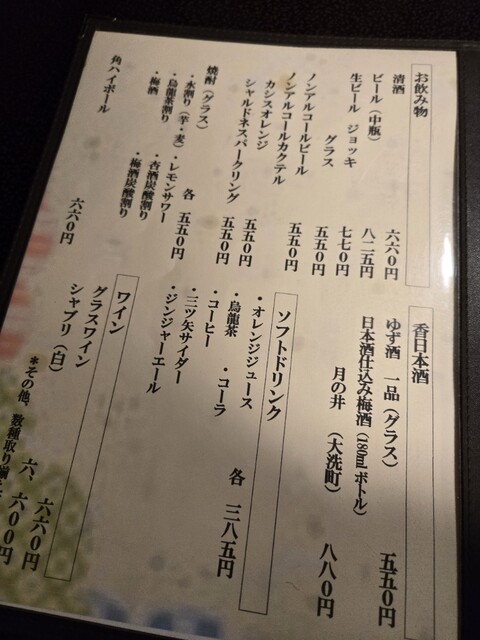 お飲み物
清酒 六六〇円
ビール（中瓶） 八二五円
生ビール ジョッキ 七七〇円
グラス 五五〇円
ノンアルコールビール
ノンアルコールカクテル 五五〇円
カシスオレンジ
シャルドネスパークリング 五五〇円
焼酎（グラス） 各 五五〇円
・水割り（芋・麦） ・レモンサワー
・烏龍茶割り ・杏酒炭酸割り
・梅酒 ・梅酒炭酸割り
角ハイボール 六六〇円
香日本酒
ゆず酒 一品（グラス） 五五〇円
日本酒仕込み梅酒（180mlボトル）
月の井 （大洗町） 八八〇円
ソフトドリンク
・オレンジジュース 各 三八五円
・烏龍茶 ・コーラ
・コーヒー
・三ツ矢サイダー
・ジンジャーエール
ワイン
グラスワイン 六六〇円
シャブリ（白） 六、六〇〇円
＊その他、数種取り揃